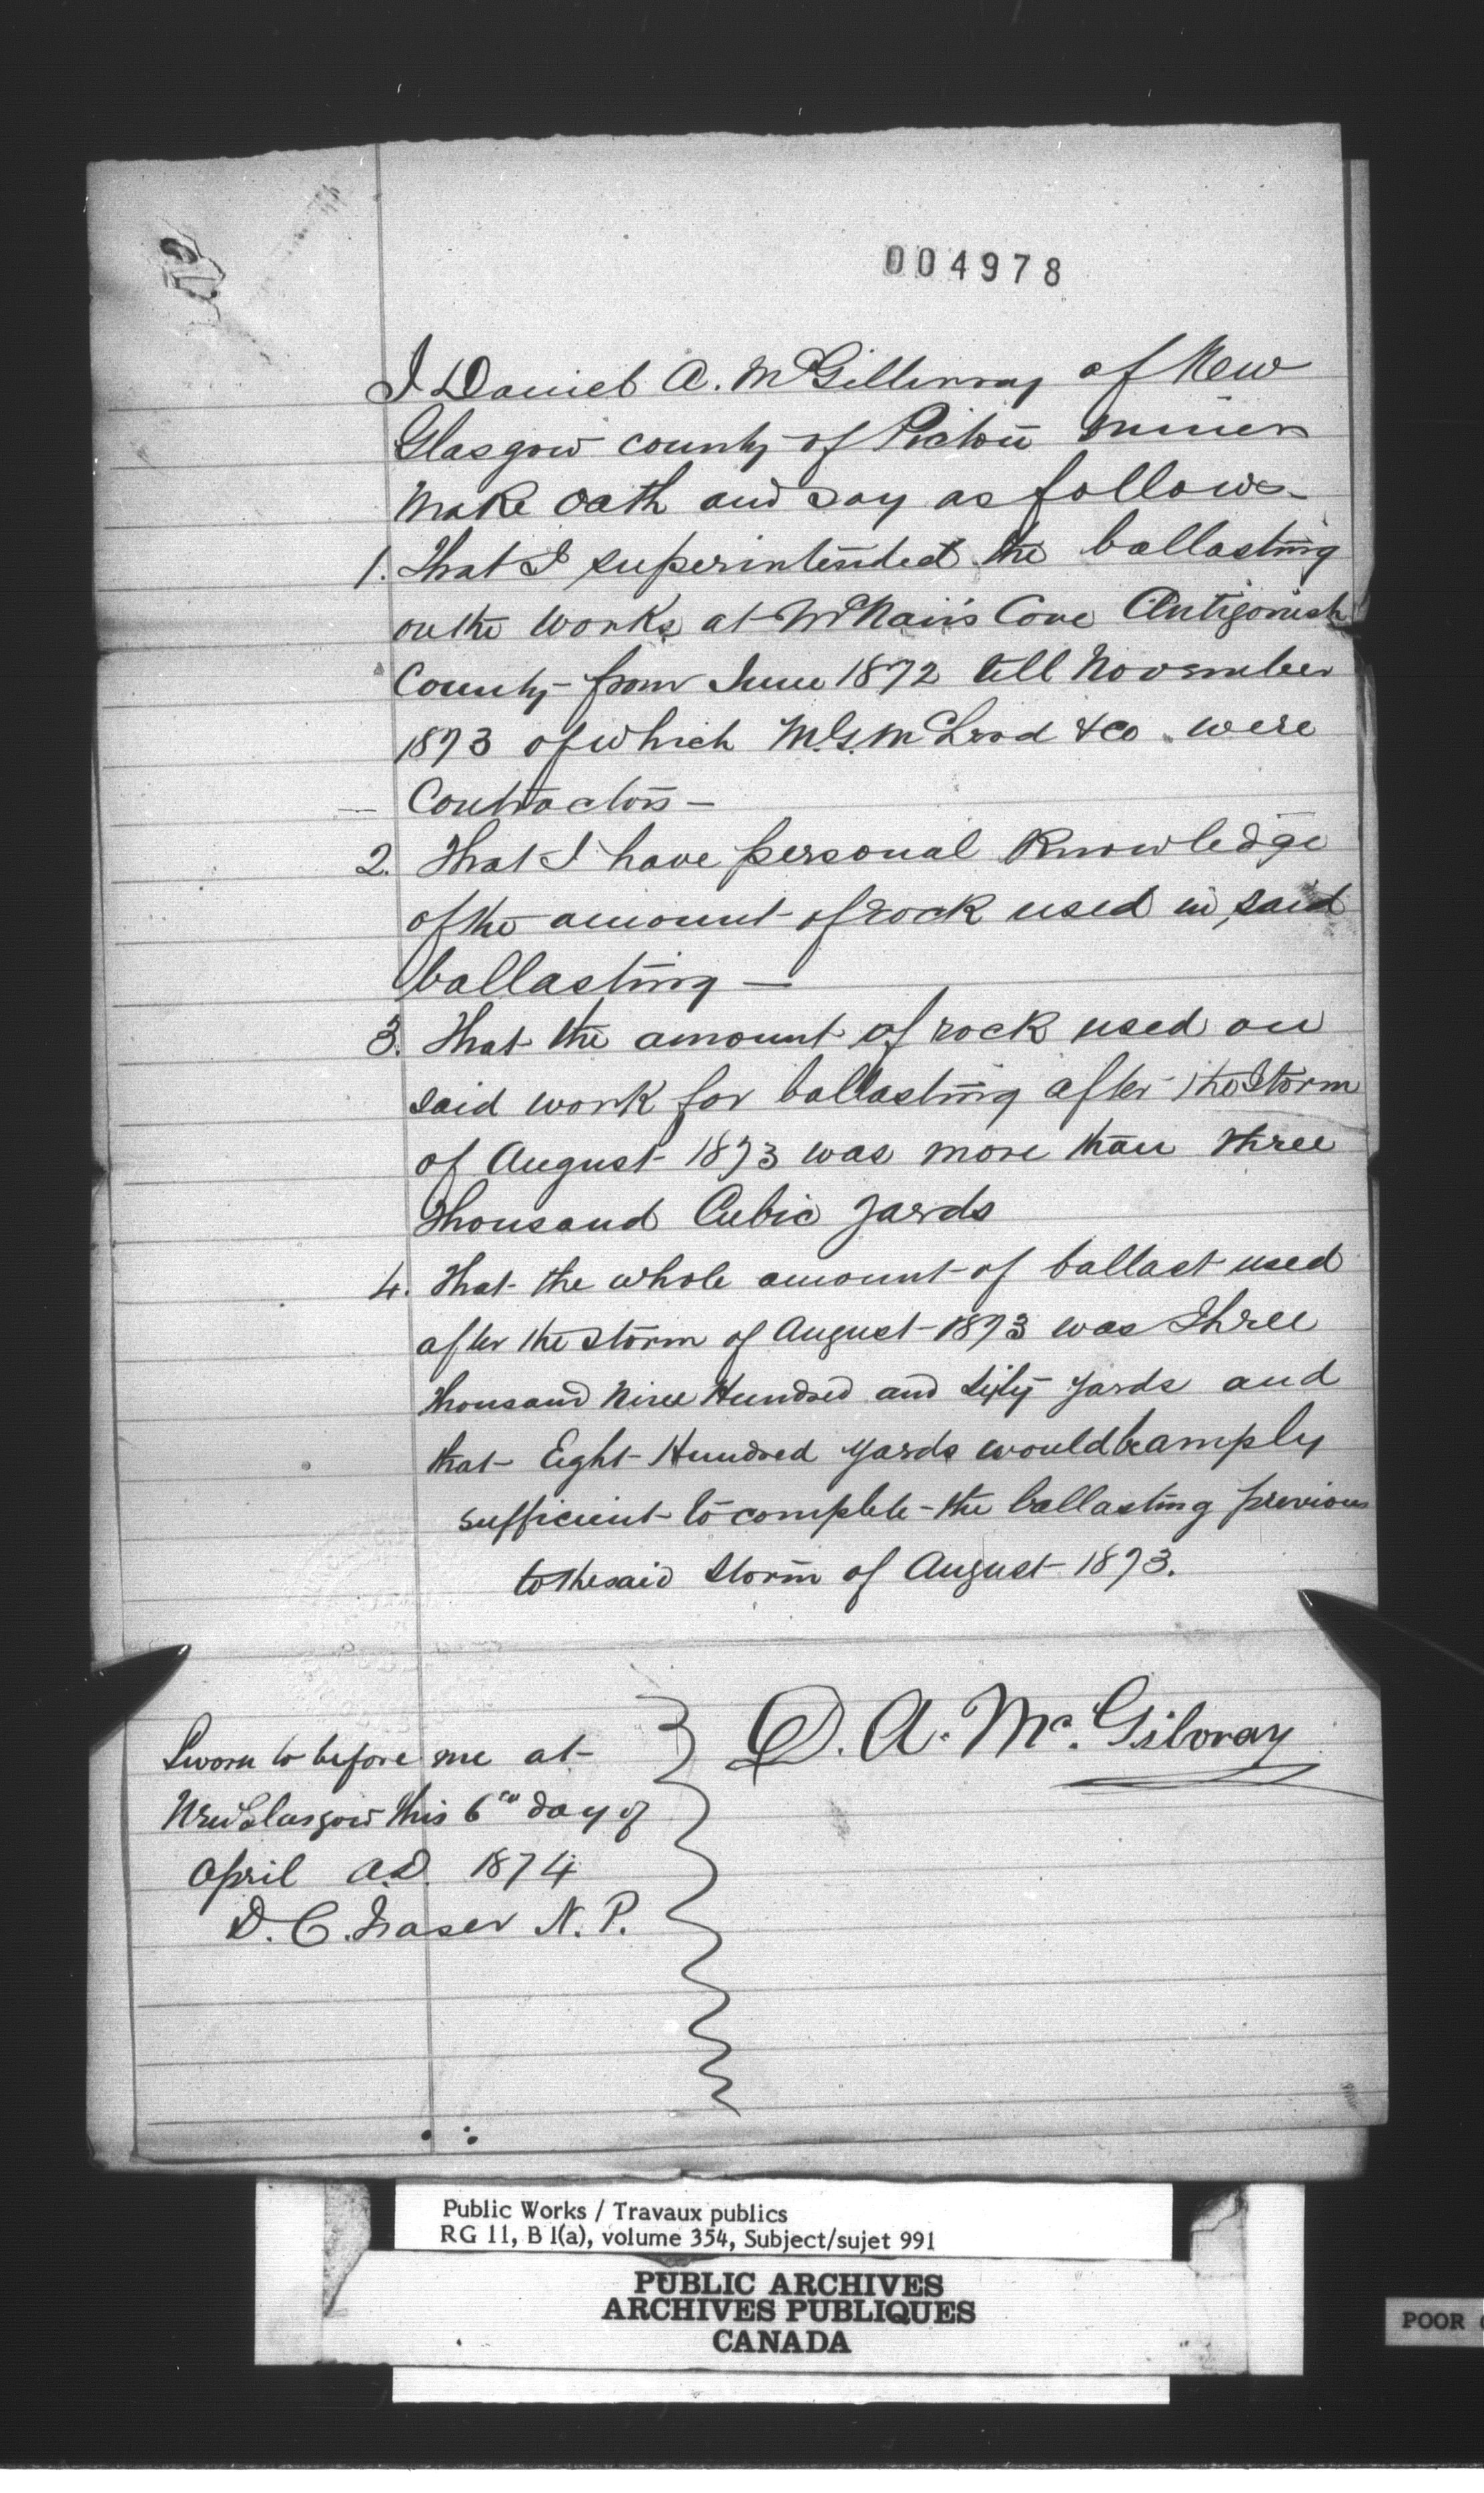 004978
I Daniel A. McGillivray of New
Glasgow county of Pictou Miner
Make oath and say as follows
1. That I superintended the ballasting
on the works at McNair's Cove Antigonish
County from June 1872 till November
1873 of which M.G. McLeod & Co. were
Contractors —
2. That I have personal Knowledge
of the amount of rock used in said
ballasting —
3. That the amount of rock used on
said work for ballasting after the Storm
of August 1873 was more than three
thousand Cubic yards
4. That the whole amount of ballast used
after the storm of August 1873 was Three
thousand Nine Hundred and yards and
that Eight Hundred yards would be amply
sufficient to complete the ballasting previous
to the said storm of August 1873.
D. A. Mc. Gilvray
Sworn to before me at
New Glasgow this 6th day of
April A.D. 1874
D. C. Fraser N. P.
Public Works / Travaux publics
RG 11, B 1(a), volume 354, Subject/sujet 991
PUBLIC ARCHIVES
ARCHIVES PUBLIQUES
CANADA
POOR